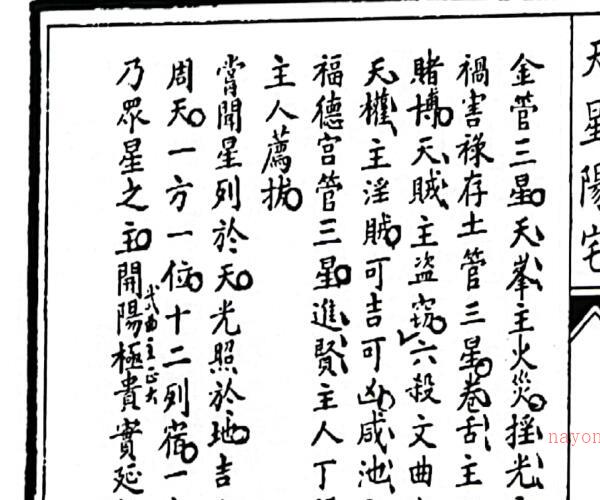 天星陽宅
金管三星天峯主火災搖光
禍害祿存土管三星卷舌主
賭博天賊主盜竊六殺文曲
天權主淫賊可吉可凶咸池
福德宮管三星進賢主人丁
主人薦拔
嘗聞星列於天光照於地吉
周天一方一位十二列宿一
乃眾星之主開陽極貴實延
武曲主正大
nayon